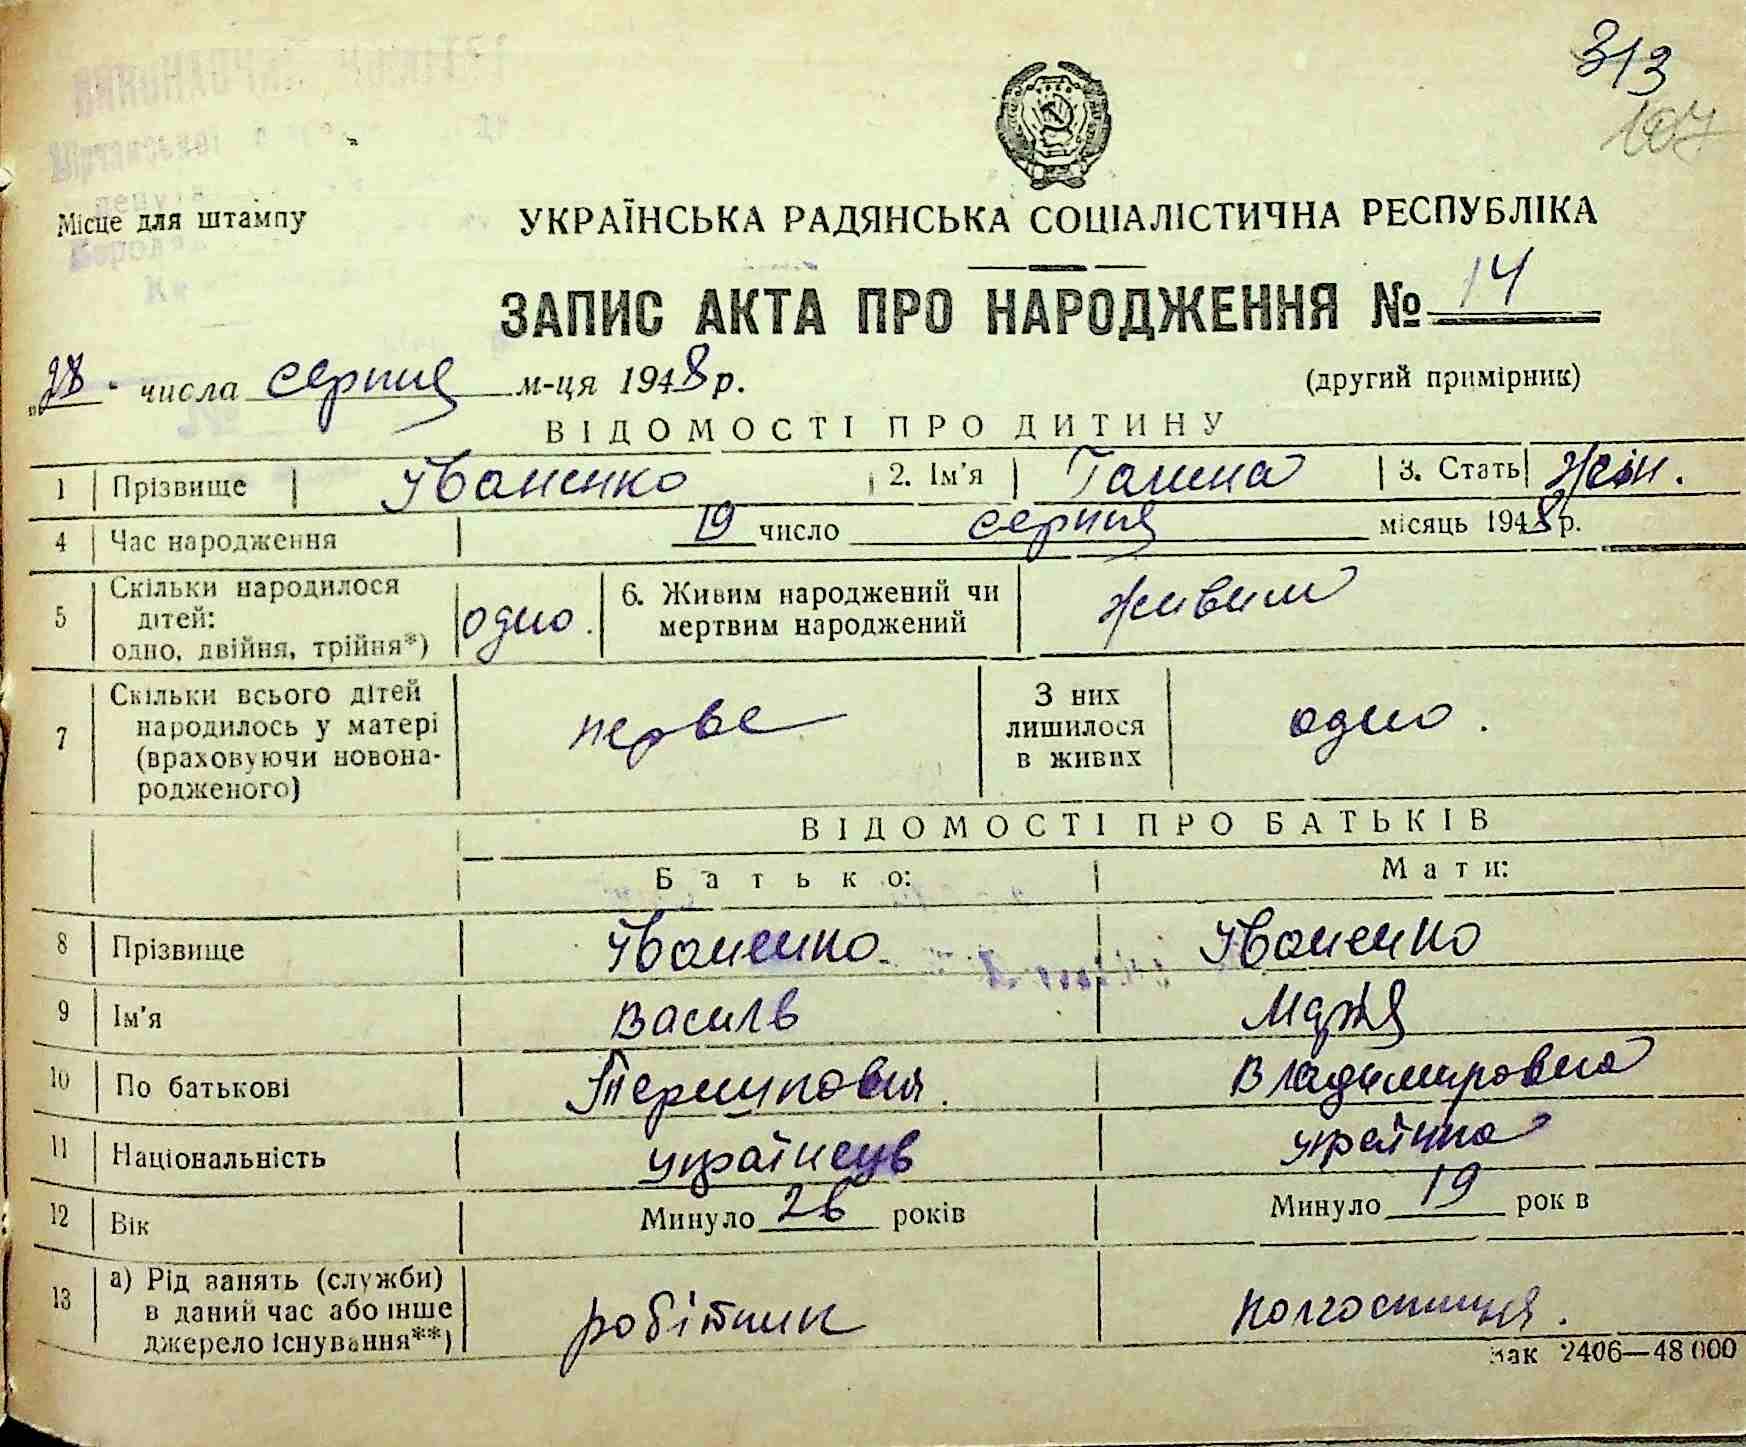 313
107
Місце для штампу
УКРАЇНСЬКА РАДЯНСЬКА СОЦІАЛІСТИЧНА РЕСПУБЛІКА
ЗАПИС АКТА ПРО НАРОДЖЕННЯ № 14
„28" числа серпня м-ця 1948 р.
(другий примірник)
ВІДОМОСТІ ПРО ДИТИНУ
1 Прізвище Іваненко 2. Ім'я Галина 3. Стать жін.
4 Час народження 19 число серпня місяць 1948 р.
5 Скільки народилося дітей: одно, двійня, трійня*) одно. 6. Живим народжений чи мертвим народжений живим
7 Скільки всього дітей народилось у матері (враховуючи новонародженого) перве З них лишилося в живих одно.
ВІДОМОСТІ ПРО БАТЬКІВ
Батько: Мати:
8 Прізвище Іваненко Іваненко
9 Ім'я Василь Марія
10 По батькові Владимировна
11 Національність українець українка
12 Вік Минуло 26 років Минуло 19 років
13 а) Рід занять (служби) в даний час або інше джерело існування**) робітник колгоспниця.
Зак 2406—48 000